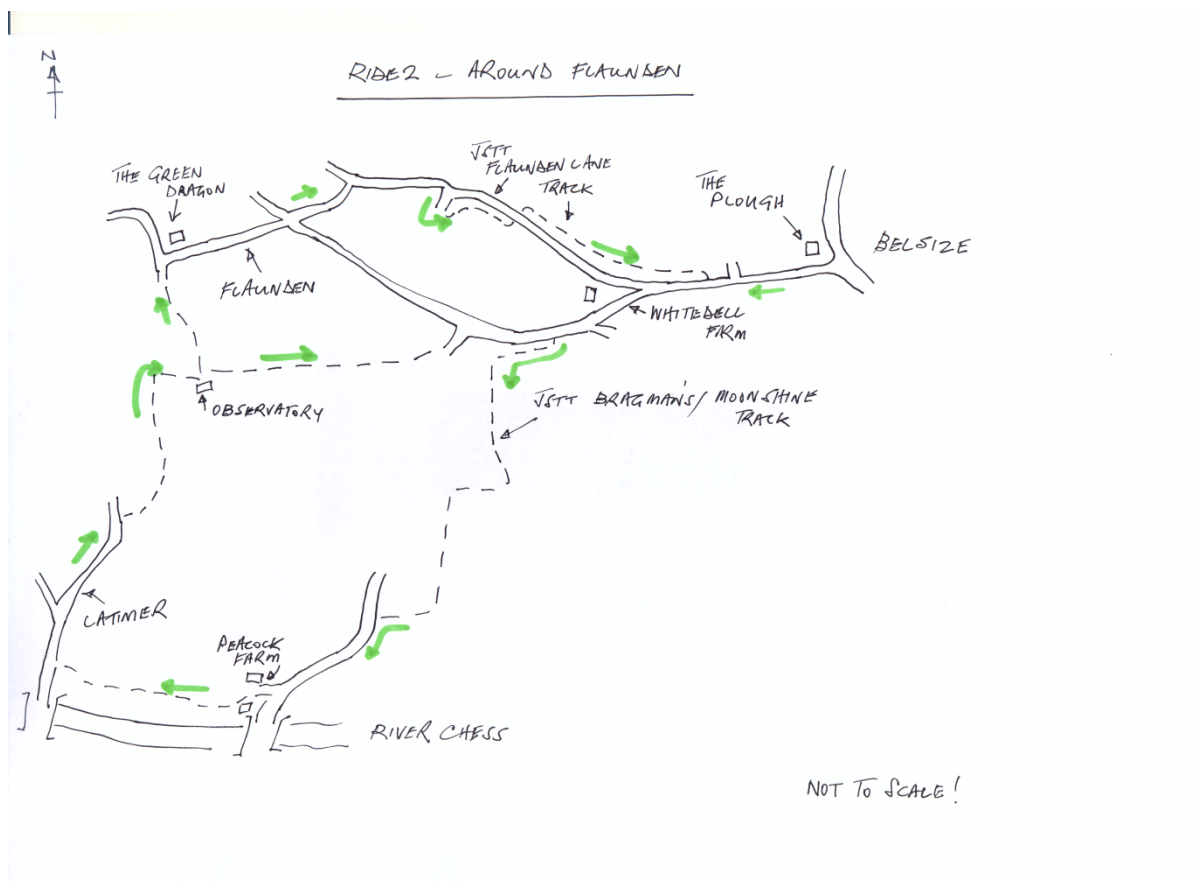 N
RIDE 2 - AROUND FLAUNDEN
THE GREEN
DRAGON
JSTT
FLAUNDEN LANE
TRACK
THE
PLOUGH
BELSIZE
FLAUNDEN
WHITEDELL
FARM
OBSERVATORY
JSTT BRAGMAN'S / MOONSHINE
TRACK
LATIMER
PEACOCK
FARM
RIVER CHESS
NOT TO SCALE!